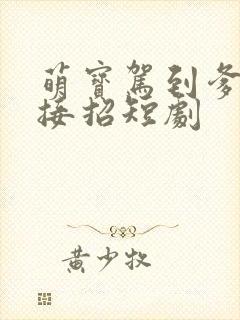 萌寶駕到爹
接招短劇
黃少牧